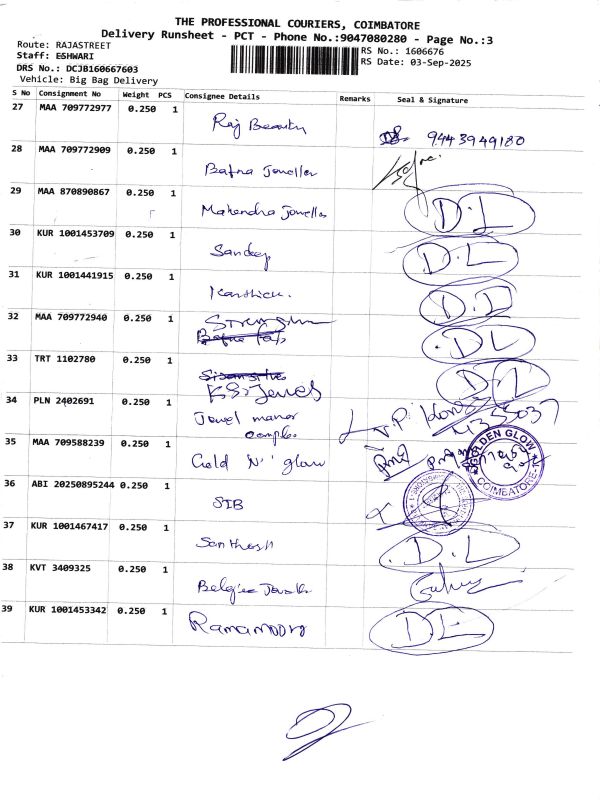 THE PROFESSIONAL COURIERS, COIMBATORE
Delivery Runsheet - PCT - Phone No.:9047080280 - Page No.:3
Route: RAJASTREET
Staff: ESHWARI
DRS No.: DCJB160667603
Vehicle: Big Bag Delivery
RS No.: 1606676
RS Date: 03-Sep-2025
S No Consignment No Weight PCS Consignee Details Remarks Seal & Signature
27 MAA 709772977 0.250 1 Raj Beauty 9443949180
28 MAA 709772909 0.250 1 Bafna Jeweller
29 MAA 870890867 0.250 1 Mahendra Jewellers D.L
30 KUR 1001453709 0.250 1 Sandeep D.L
31 KUR 1001441915 0.250 1 Karthick. D.L
32 MAA 709772940 0.250 1 D.L
33 TRT 1102780 0.250 1 D.L
34 PLN 2402691 0.250 1 Jewel manor
complex
35 MAA 709588239 0.250 1 Gold 'N' glow GOLDEN GLOW COIMBATORE-1
36 ABI 20250895244 0.250 1 SIB
37 KUR 1001467417 0.250 1 Santhosh D.L
38 KVT 3409325 0.250 1
39 KUR 1001453342 0.250 1 D.L